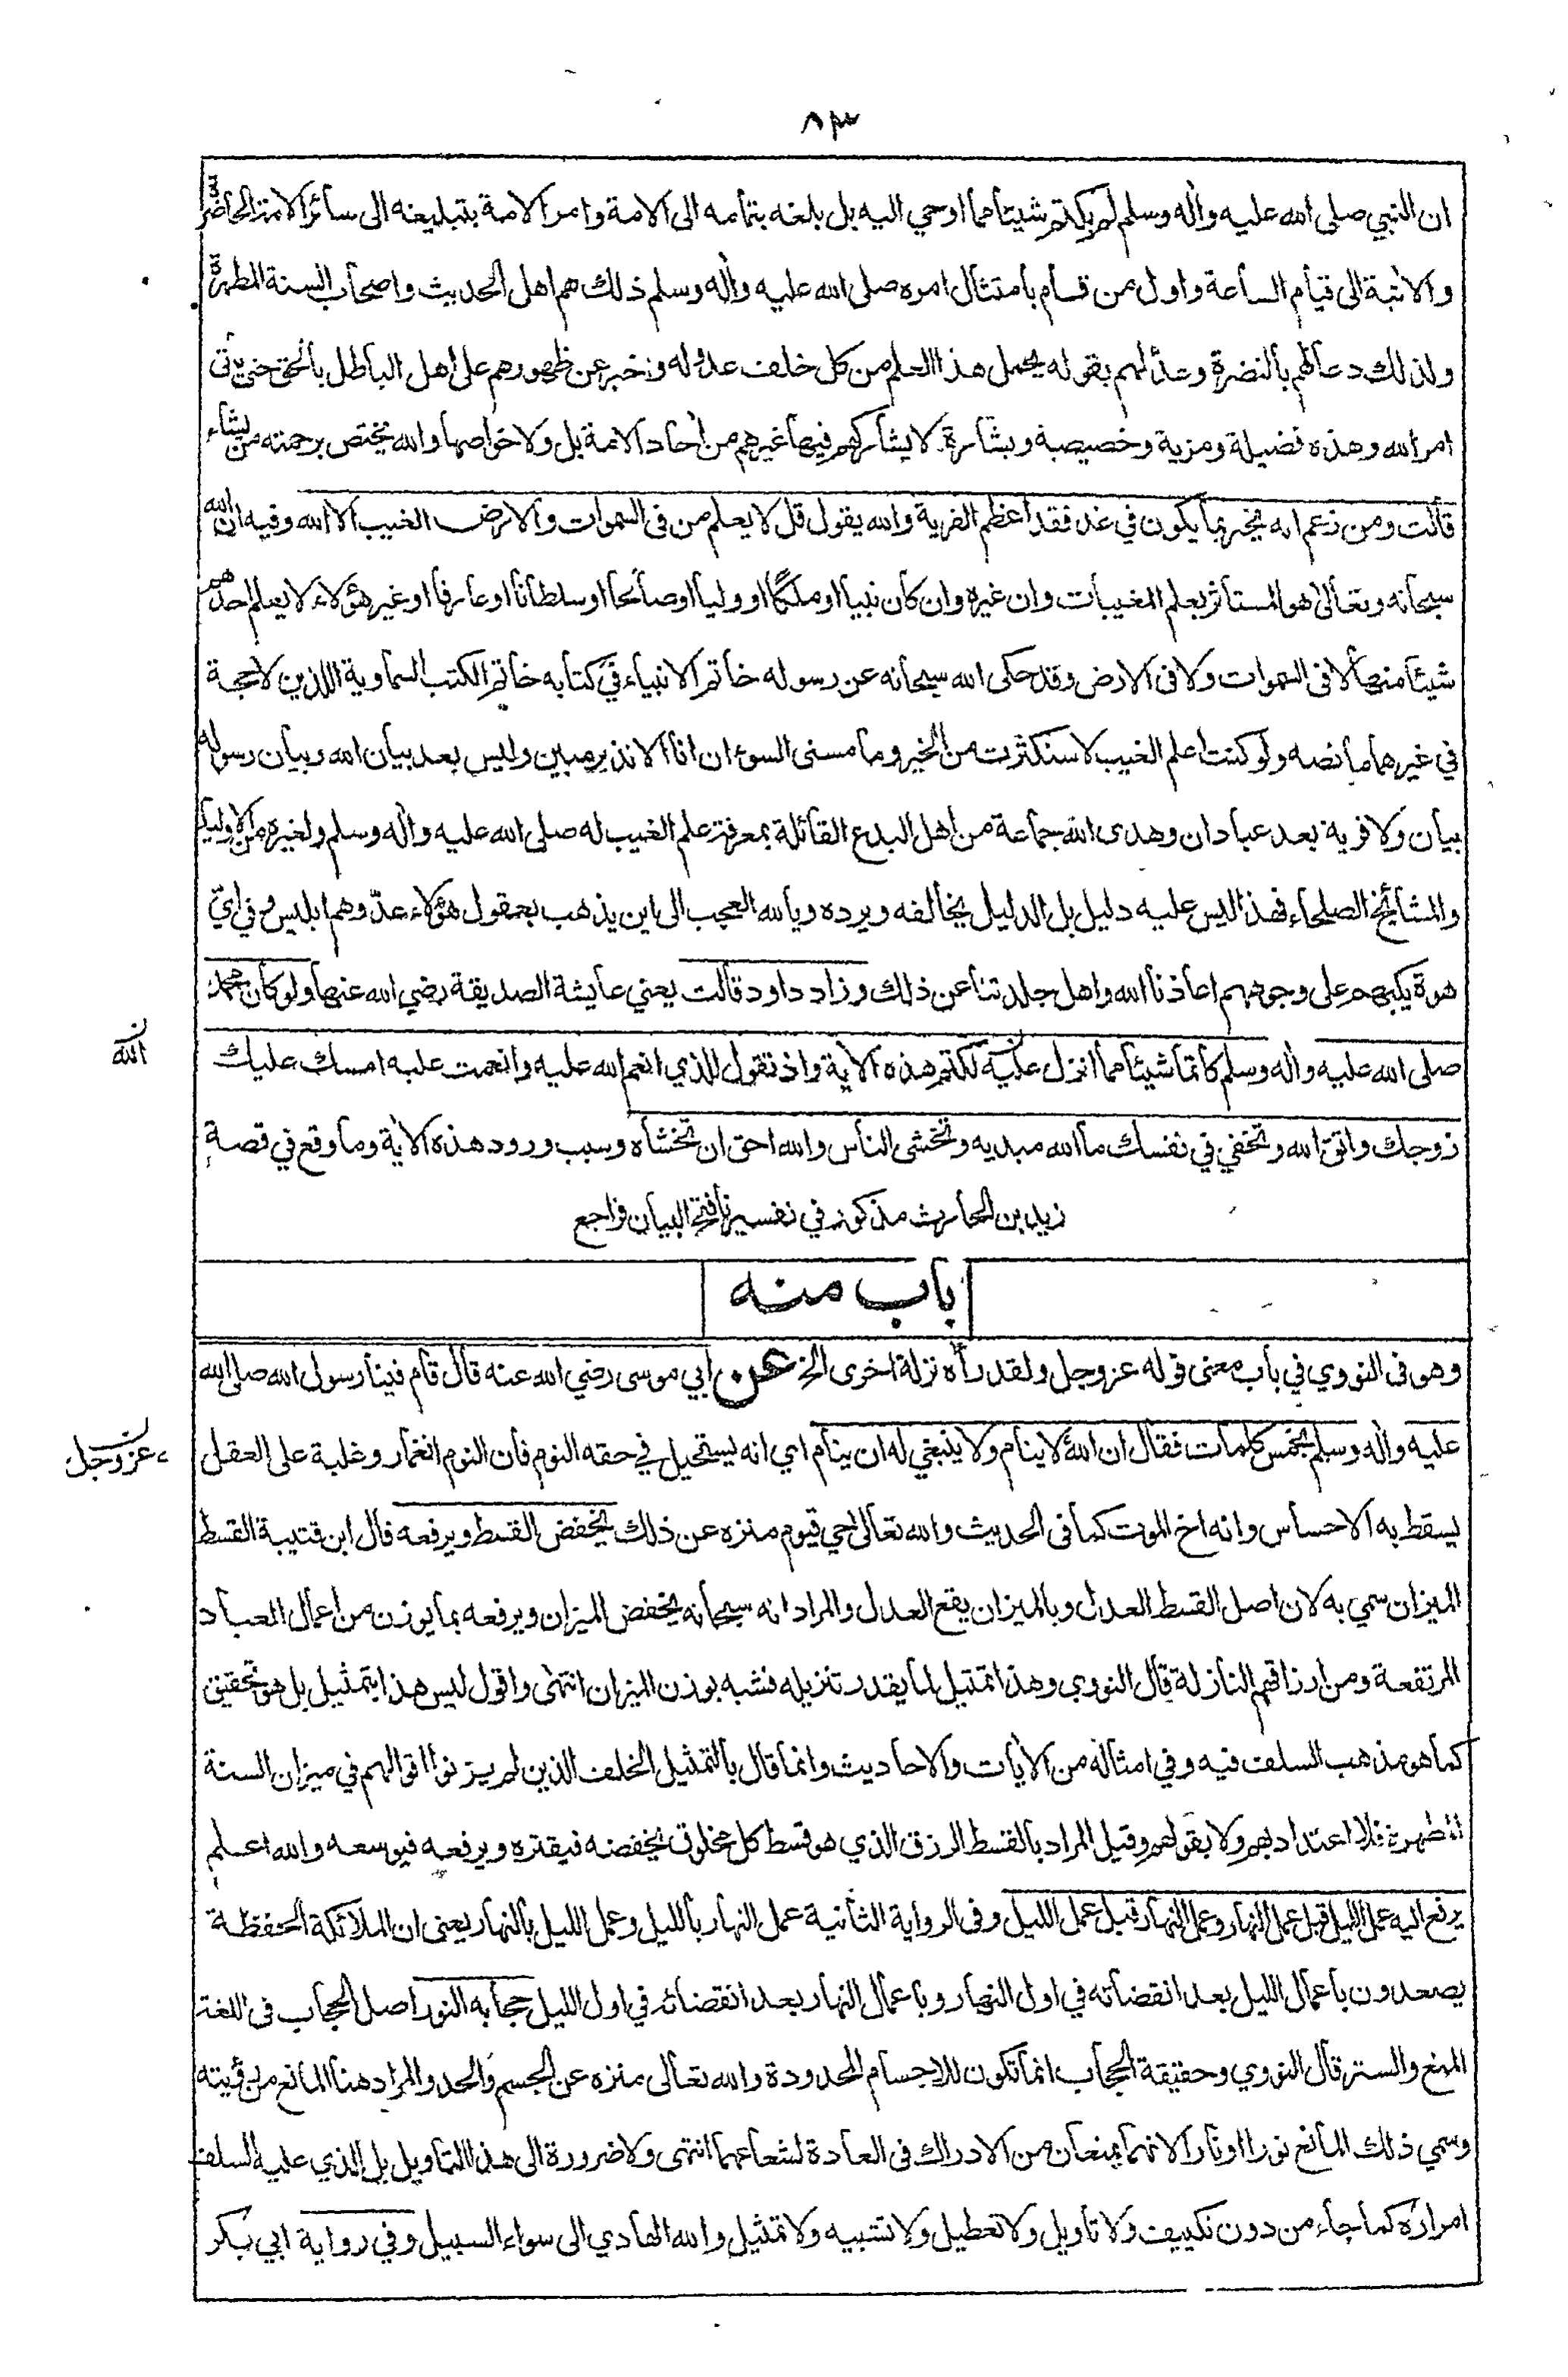 ٨٣
ان النبي صلى الله عليه واٰله وسلم لم يكتم شيئا مما اوحي اليه بل بلغه بتمامه الى الامة وامر الامة بتبليغه الى سائر الامة الحاضرة
والاٰتية الى قيام الساعة واول من قام بامتثال امره صلى الله عليه واٰله وسلم ذلك هم اهل الحديث واصحاب السنة المطهرة
ولذلك دعا لهم بالنضرة وعدّلهم بقوله يحمل هذا العلم من كل خلف عدوله واخبر عن ظهورهم على اهل الباطل بالحق حتى يأتى
امر الله وهذه فضيلة ومزية وخصيصة وبشارة لا يشاركهم فيها غيرهم من اٰحاد الامة بل ولا خواصها والله يختص برحمته من يشاء
قالت ومن زعم انه يخبر بما يكون في غد فقد اعظم الفرية والله يقول قل لا يعلم من فى السموات والارض الغيب الا الله وفيه ان الله
سبحانه وتعالى هو المستأثر بعلم المغيبات وان غيره وان كان نبيا او ملكًا او وليا او صالحا او سلطانا او عارفا او غير هؤلاء لا يعلم احدهم
شيئا منها لا فى السموات ولا فى الارض وقد حكى الله سبحانه عن رسوله خاتم الانبياء في كتابه خاتم الكتب السماوية اللذين لا حجة
في غيرهما ما نصه ولو كنت اعلم الغيب لاستكثرت من الخير وما مسنى السوء ان انا الا نذير مبين وليس بعد بيان الله وبيان رسوله
بيان ولا قرية بعد عبادان وهدى الله جماعة من اهل البدع القائلة بمعرفة علم الغيب له صلى الله عليه واٰله وسلم ولغيره من الاولياء
والمشائخ الصلحاء فهذا ليس عليه دليل بل الدليل يخالفه ويرده ويالله العجب الى اين يذهب بعقول هؤلاء عدّوهم ابليس وفي ايّ
هوة يكبهم على وجوههم اعاذنا الله واهل جلدتنا عن ذلك وزاد داود قالت يعني عايشة الصديقة رضي الله عنها ولو كان محمد
صلى الله عليه واٰله وسلم كاتما شيئا مما انزل عليه لكتم هذه الاٰية واذ تقول للذي انعم الله عليه وانعمت عليه امسك عليك
ن الله
زوجك واتق الله وتخفي في نفسك ما الله مبديه وتخشى الناس والله احق ان تخشاه وسبب ورود هذه الاٰية وما وقع في قصة
زيد بن الحارث مذكور في تفسيرنا فتح البيان فراجع
باب منه
وهو فى النووي في باب معنى قوله عز وجل ولقد راٰه نزلة اخرى الخ عن ابي موسى رضي الله عنه قال قام فينا رسول الله صلى الله
عليه واٰله وسلم بخمس كلمات فقال ان الله لا ينام ولا ينبغي له ان ينام اي انه يستحيل في حقه النوم فان النوم انغمار وغلبة على العقل
ن عز وجل
يسقط به الاحساس وانه اخ الموت كما فى الحديث والله تعالى حي قيوم منزه عن ذلك يخفض القسط ويرفعه قال ابن قتيبة القسط
الميزان سمي به لان اصل القسط العدل وبالميزان يقع العدل والمراد انه سبحانه يخفض الميزان ويرفعه بما يوزن من اعمال العباد
المرتفعة ومن ارزاقهم النازلة قال النووي وهذا تمثيل لما يقدر تنزيله فشبه بوزن الميزان انتهى واقول ليس هذا بتمثيل بل هو تحقيق
كما هو مذهب السلف فيه وفي امثاله من الاٰيات والاحاديث وانما قال بالتمثيل الخلف الذين لم يزنوا اقوالهم في ميزان السنة
المطهرة فلا اعتداد بهم ولا بقولهم وقيل المراد بالقسط الرزق الذي هو قسط كل مخلوق يخفضه فيقتره ويرفعه فيوسعه والله اعلم
يرفع اليه عمل الليل قبل عمل النهار وعمل النهار قبل عمل الليل وفى الرواية الثانية عمل النهار بالليل وعمل الليل بالنهار يعنى ان الملائكة الحفظة
يصعدون باعمال الليل بعد انقضائه في اول النهار وباعمال النهار بعد انقضائه في اول الليل حجابه النور اصل الحجاب فى اللغة
المنع والستر قال النووي وحقيقة الحجاب انما تكون للاجسام المحدودة والله تعالى منزه عن الجسم والحد والمراد هنا المانع من رؤيته
وسمي ذلك المانع نورا او نارا لانهما يمنعان من الادراك فى العادة لشعاعهما انتهى ولا ضرورة الى هذا التاويل بل الذي عليه السلف
امراره كما جاء من دون تكييف ولا تاويل ولا تعطيل ولا تشبيه ولا تمثيل والله الهادي الى سواء السبيل وفي رواية ابي بكر